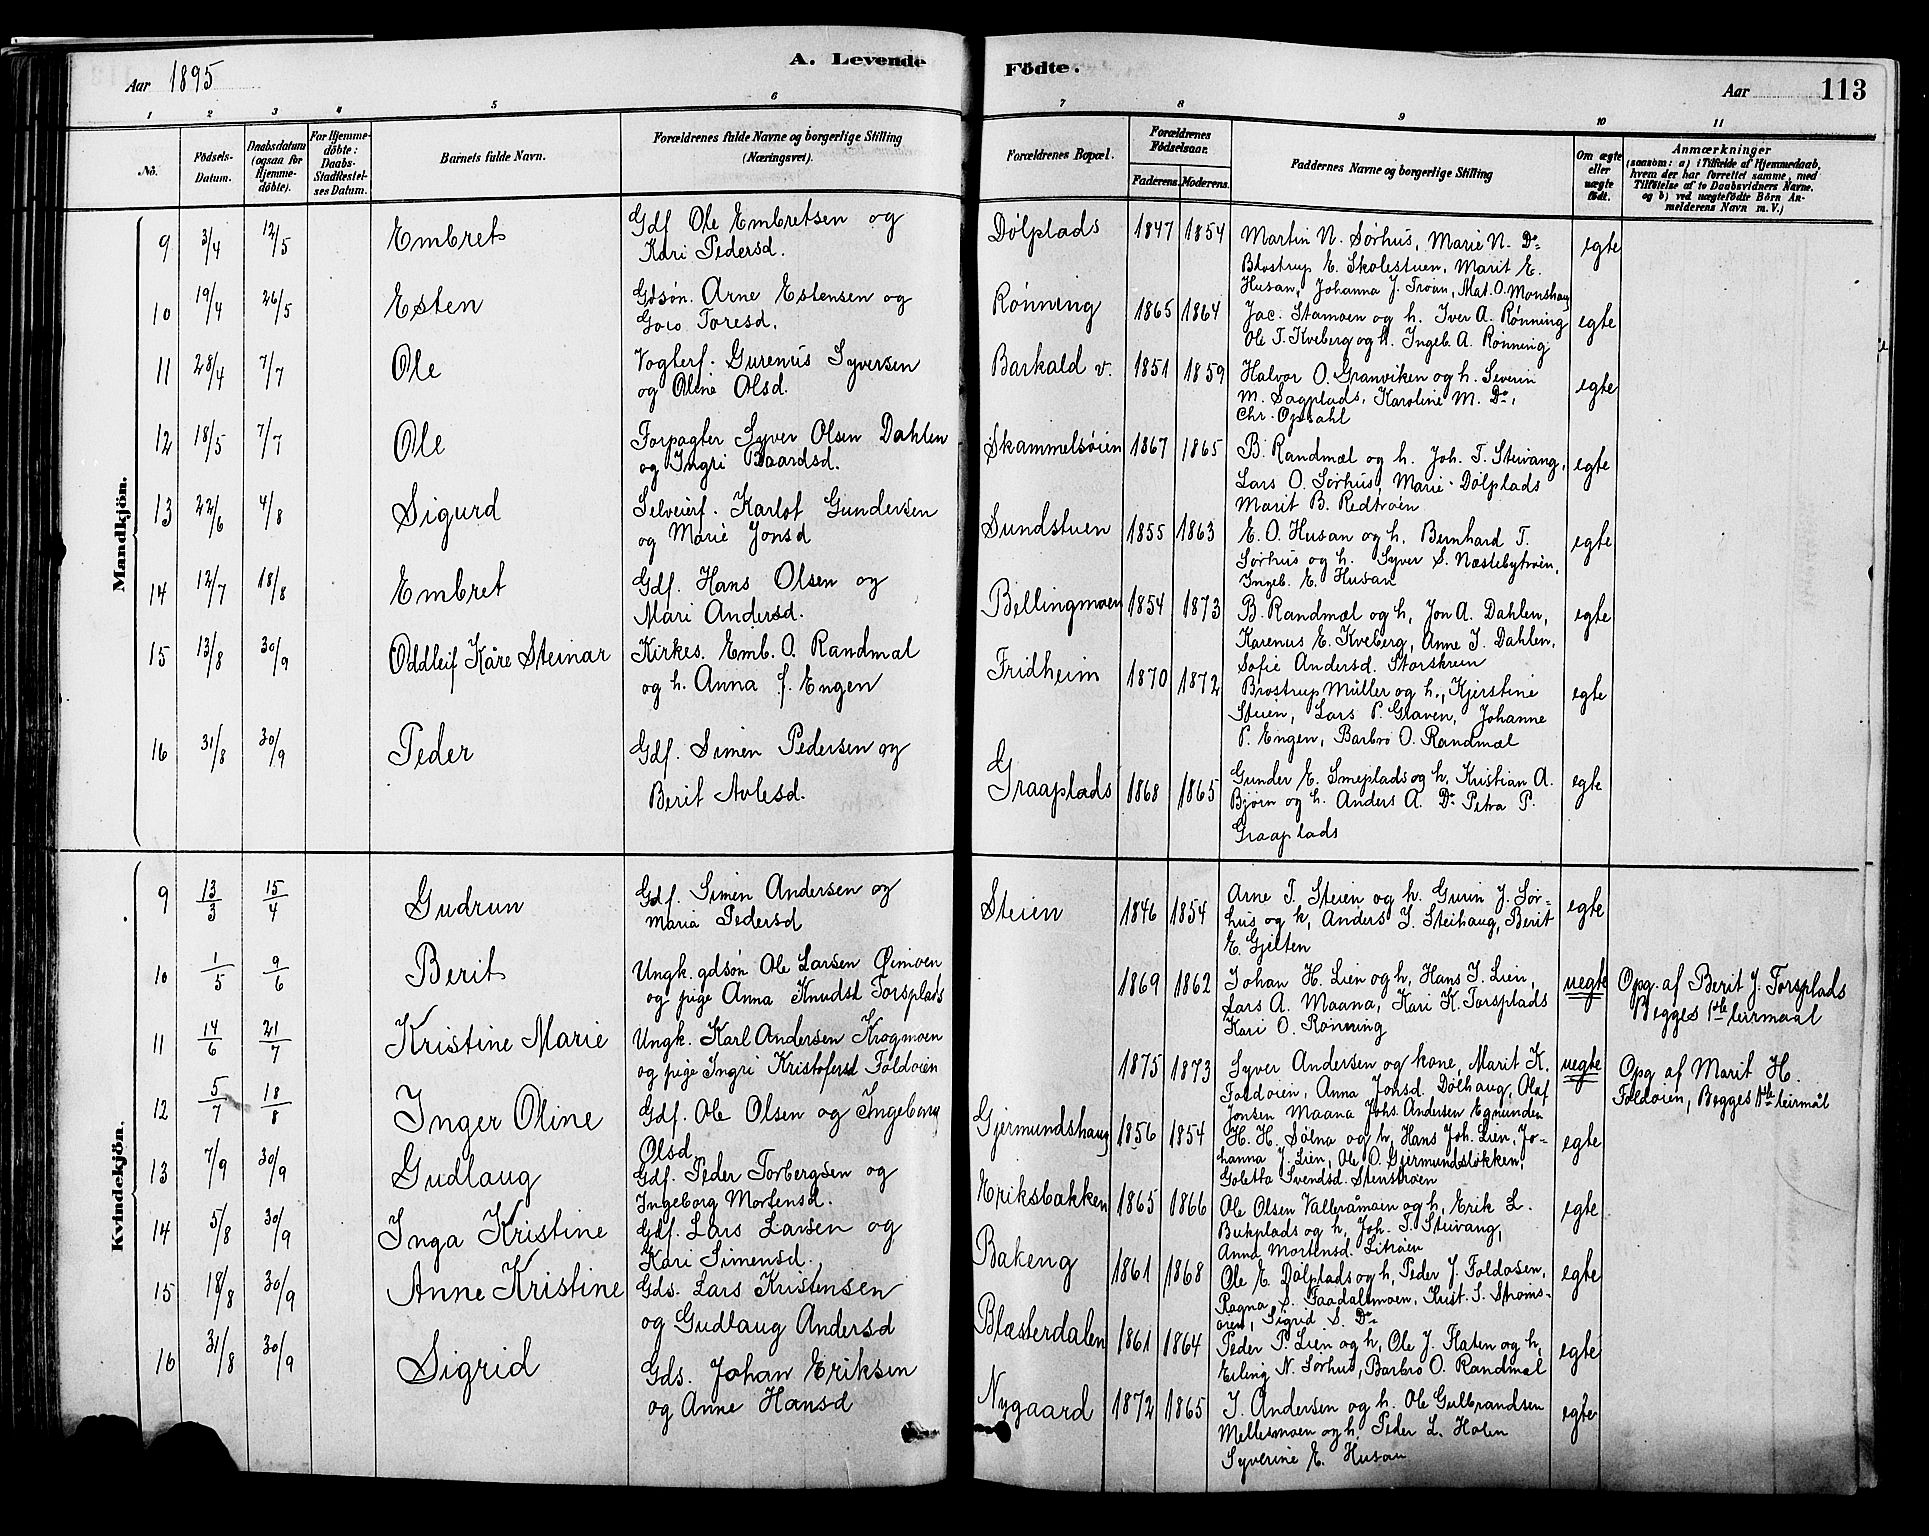 A. Levende Fødte.
Aar 1895
Aar 113
1 2 3 4 5 6 7 8 9 10 11
No.
Fødsels-Datum.
Daabsdatum (ogsaa for Hjemme-døbte).
For Hjemme-døbte: Daabs-Stadfæstelses Datum.
Barnets fulde Navn.
Forældrenes fulde Navne og borgerlige Stilling (Næringsvei).
Forældrenes Bopæl.
Forældrenes Fødselsaar.
Faderens. Moderens.
Faddernes Navne og borgerlige Stilling
Om ægte eller uægte født.
Anmærkninger
(saasom: a) i Tilfælde af Hjemmedaab, hvem der har forrettet samme, med Tilføielse af to Daabsvidners Navne, og b) ved uægtefødte Børn Anmelderens Navn m. V.)
Mandkjön.
9 3/4 12/5 Embret
Gdf Ole Embretsen og
Kari Pedersd.
Dölplads 1847 1854
Martin N. Sørhus, Marie N. Do
Blostrup E. Skolestuen, Marit E.
Husan, Johanna J. Troan, Mat. O. Monshaug
egte
10 19/4 26/5 Esten
Gdsøn. Arne Estensen og
Goro Toresd.
Rønning 1865 1864
Jac. Stamoen og h. Iver A. Rønning
Ole T. Kveberg og h. Ingeb. A. Rønning
egte
11 28/4 7/7 Ole
Vogterf. Gurenus Syversen
og Oline Olsd.
Barkald v. 1851 1859
Halvor O. Granviken og h. Severin
M. Sagplads, Karoline M. Do,
Chr. Opsahl
egte
12 18/5 7/7 Ole
Forpagter Syver Olsen Dahlen
og Ingri Baardsd.
Skammelsøien 1867 1865
B. Randmæl og h. Joh. T. Steivang,
Lars O. Sørhus, Marie Dölplads
Marit B. Redtrøen
egte
13 22/6 4/8 Sigurd
Selveierf. Karlot Gundersen
og Marie Jonsd
Sundstuen 1855 1863
E. O. Husan og h. Bernhard T.
Sørhus og h. Syver S. Næstebytrøen,
Ingeb. E. Husan
egte
14 12/7 18/8 Embret
Gdf. Hans Olsen og
Mari Andersd.
Bellingmoen 1854 1873
B. Randmæl og h, Jon A. Dahlen,
Karenus E. Kveberg, Anne J. Dahlen,
Sofie Andersd. Storskreen
egte
15 13/8 30/9 Oddleif Kåre Steinar
Kirkes. Emb. O. Randmæl
og h. Anna f. Engen
Fridheim 1870 1872
Brostrup Müller og h., Kjerstine
Steien, Lars P. Graven, Johanne
P. Engen, Barbro O. Randmæl
egte
16 31/8 30/9 Peder
Gdf. Simen Pedersen og
Berit Avlesd.
Graaplads 1868 1865
Gunder E. Smeplads og h, Kristian A.
Bjørn og h. Anders A. Do Petra P.
Graaplads
egte
Kvindekjön.
9 13/3 15/4 Gudrun
Gdf. Simen Andersen og
Maria Pedersd
Steien 1846 1854
Arne T. Steien og h. Gurin J. Sør-
hus og h, Anders J. Steihaug, Berit
E. Gjelten
egte
10 1/5 9/6 Berit
Ungk. gdsøn Ole Larsen Øimoen
og pige Anna Knudsd Forsplads
1869 1862
Johan H. Lien og h, Hans J. Lien,
Lars A. Maana, Kari K. Forsplads
Kari O. Rønning
uegte
Opg. af Berit J. Forsplads
Begges 1ste leirmaal
11 14/6 21/7 Kristine Marie
Ungk. Karl Andersen Krogmoen
og pige Ingri Kristofersd Foldøien
1875 1873
Syver Andersen og kone, Marit K.
Foldøien, Anna Jonsd. Dölhaug, Olaf
Jonsen Maana Johs. Andersen Egnunden
uegte
Opg af Marit H.
Foldøien, Begges 1ste leirmål
12 5/7 18/8 Inger Oline
Gdf. Ole Olsen og Ingeborg
Olsd
Gjermundshaug 1856 1854
H. H. Sölna og h, Hans Joh. Lien, Jo-
hanna J. Lien, Ole O. Gjermundsløkken,
Goletta Svendsd. Stenstrøen
egte
13 7/9 30/9 Gudlaug
Gdf. Peder Torbergsen og
Ingeborg Mortensd.
Eriksbakken 1865 1866
Ole Olsen Valleråmoen og h, Erik L.
Bukplads og h, Joh. T. Steivang,
Anna Mortensd. Litrøen
egte
14 5/8 30/9 Inga Kristine
Gdf. Lars Larsen og
Kari Simensd.
Bakeng 1861 1868
Ole E. Dölplads og h, Peder J. Foldøsen,
Ragna S. Faadalsmoen, Krist. S. Strøms-
øien, Sigrid S. Do
egte
15 18/8 30/9 Anne Kristine
Gds. Lars Kristensen
og Gudlaug Andersd
Blæsterdalen 1861 1864
Peder P. Lien og h, Ole J. Flaten og h,
Erling N. Sørhus, Barbro O. Randmæl
egte
16 31/8 30/9 Sigrid
Gds. Johan Eriksen
og Anne Hansd
Nygaard 1872 1865
J. Andersen og h. Ole Gulbrandsen
Mellesmoen og h, Peder L. Holen
Syverine E. Husan
egte